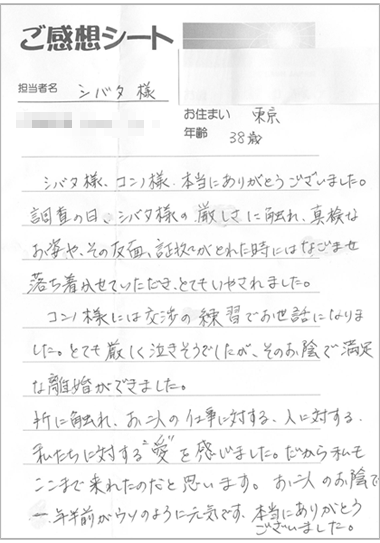 ご感想シート
担当者名 シバタ様
お住まい 東京
年齢 38歳
シバタ様、コンノ様、本当にありがとうございました。
調査の日、シバタ様の厳しさに触れ、真検な
お姿や、その反面、証拠がとれた時にはなごませ
落ち着かせていただき、とてもいやされました。
コンノ様には交渉の練習でお世話になりま
した。とても厳しく泣きそうでしたが、そのお陰で満足
な離婚ができました。
折に触れ、お二人の仕事に対する、人に対する、
私たちに対する"愛"を感じました。だから私も
ここまで来れたのだと思います。お二人のお陰で
一年半前がウソのように元気です。本当にありがとう
ございました。